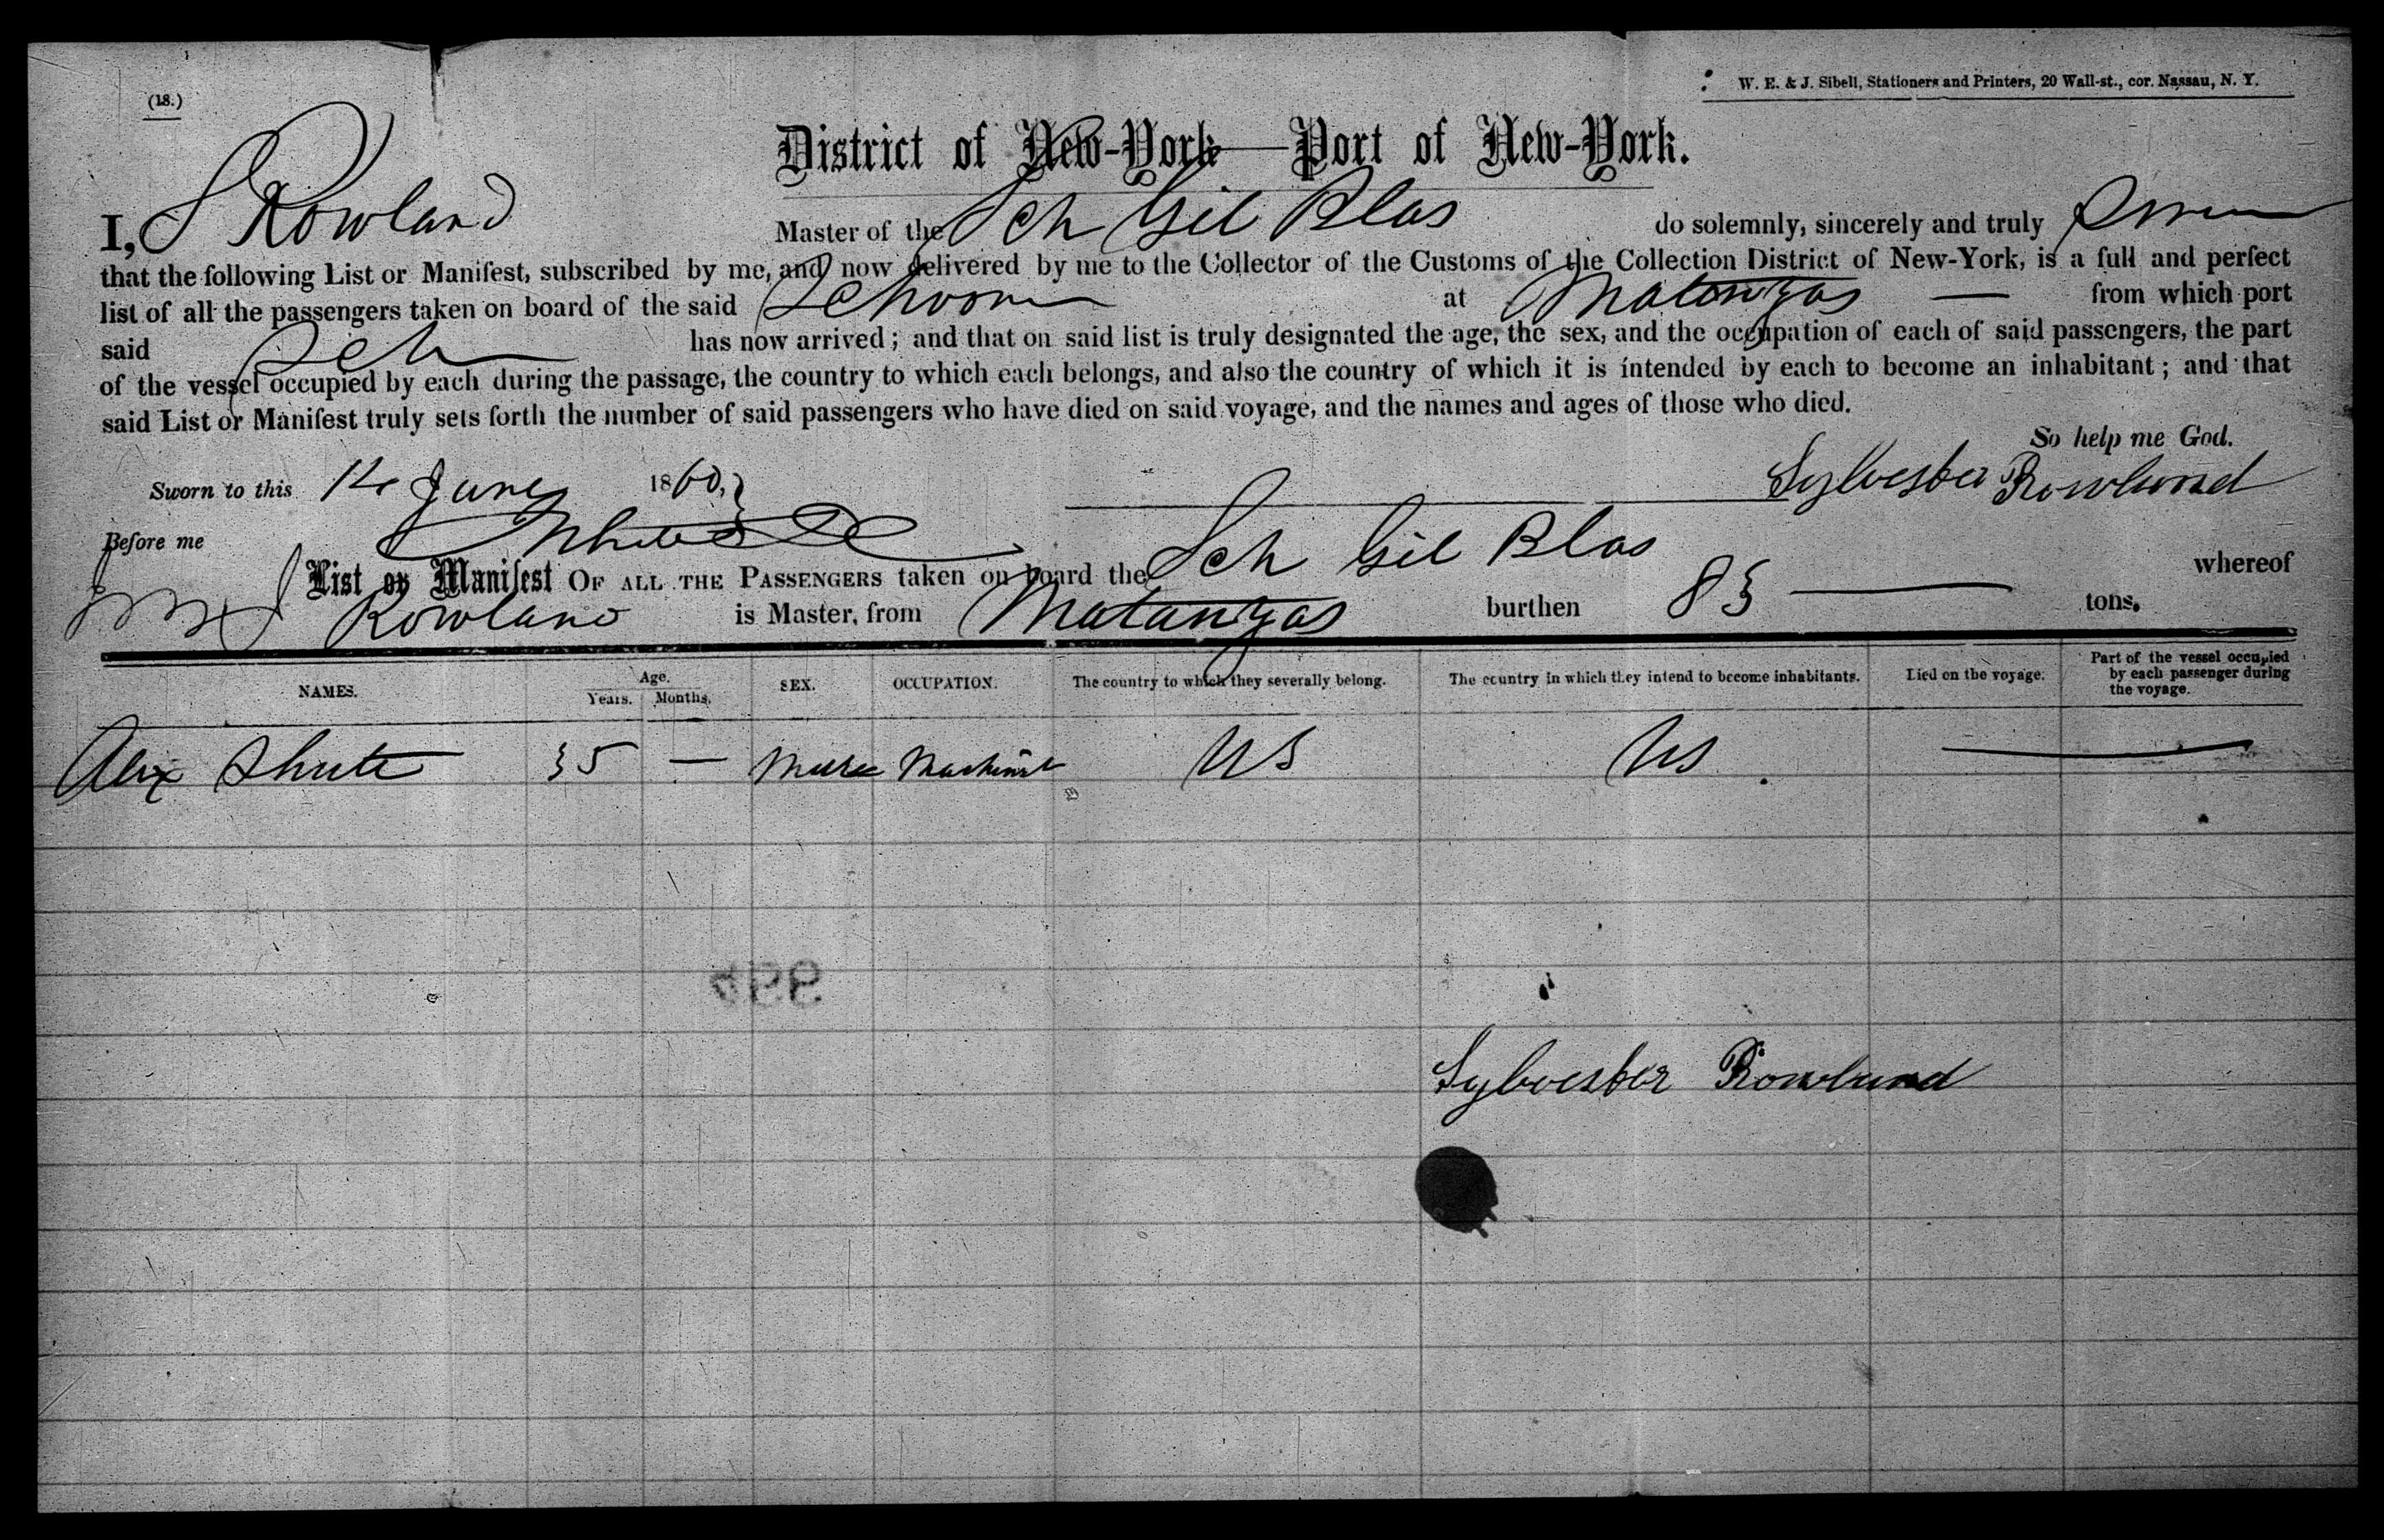 (18.)
W. E. & J. Sibell, Stationers and Printers, 20 Wall-st., cor. Nassau, N. Y.
District of New-York—Port of New-York.
I, S Rowland Master of the Sch Gil Blas do solemnly, sincerely and truly
that the following List or Manifest, subscribed by me, and now delivered by me to the Collector of the Customs of the Collection District of New-York, is a full and perfect
list of all the passengers taken on board of the said Schooner at Matanzas — from which port
said Sch has now arrived; and that on said list is truly designated the age, the sex, and the occupation of each of said passengers, the part
of the vessel occupied by each during the passage, the country to which each belongs, and also the country of which it is intended by each to become an inhabitant; and that
said List or Manifest truly sets forth the number of said passengers who have died on said voyage, and the names and ages of those who died.
So help me God.
Sworn to this June 1860, Sylvester Rowland
Before me
List or Manifest OF ALL THE PASSENGERS taken on board the Sch Gil Blas whereof
Rowland is Master, from Matanzas burthen 83 — tons.
NAMES. Age. Years. Months. SEX. OCCUPATION. The country to which they severally belong. The country in which they intend to become inhabitants. Died on the voyage. Part of the vessel occupied by each passenger during the voyage.
Alex Shute 35 — Male Machinist US US —
994
Sylvester Rowland